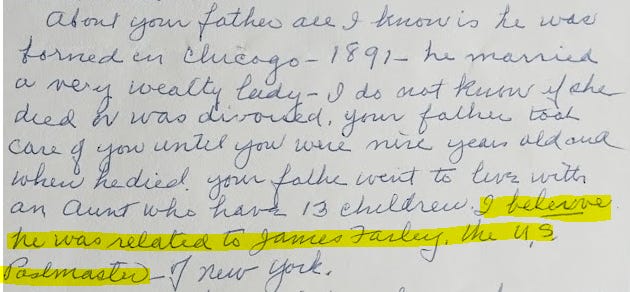 About your father all I know is he was
formed in Chicago - 1891 - he married
a very wealty lady - I do not know if she
died or was divorsed, your father took
care of you until you were nine years old and
when he died. your fathe went to live with
an Aunt who have 13 children. I beleive
he was related to James Farley, the U,S
Postmaster - of New York.